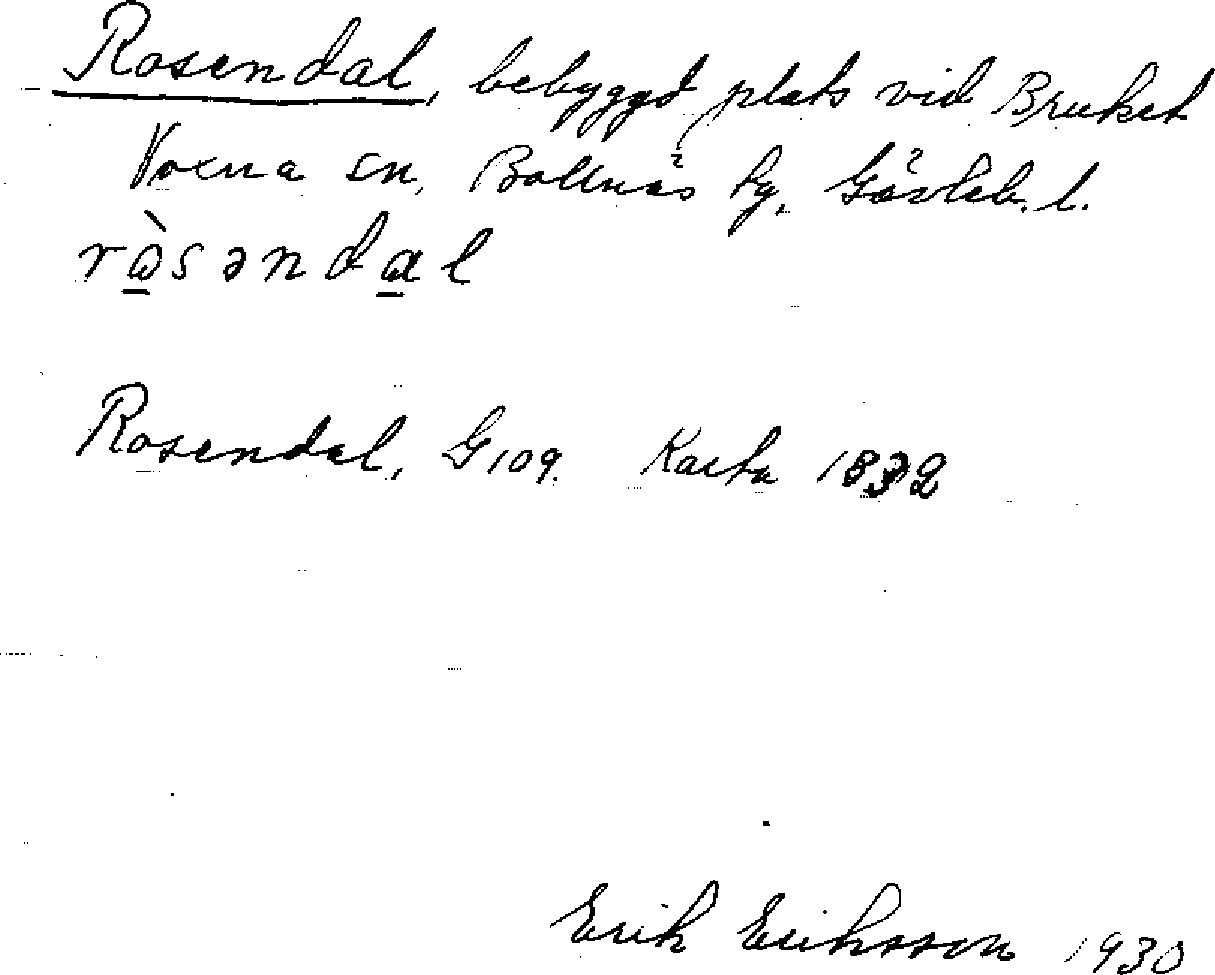 Rosendal, bebyggd plats vid Bruket
Voxna sn, Bollnäs tg, Gävleb. l.
ròsəndal
Rosendal, G109. Karta 1832
Erik Eriksson 1930